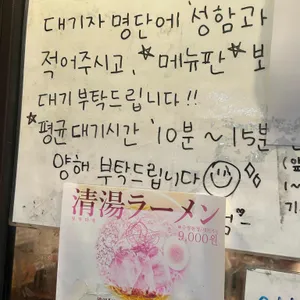 대기자 명단에 '성함과
적어주시고, *메뉴판* 보
대기 부탁드립니다!!
*평균 대기시간 '10분~15분
양해 부탁드립니다
清湯ラーメン
9,000원